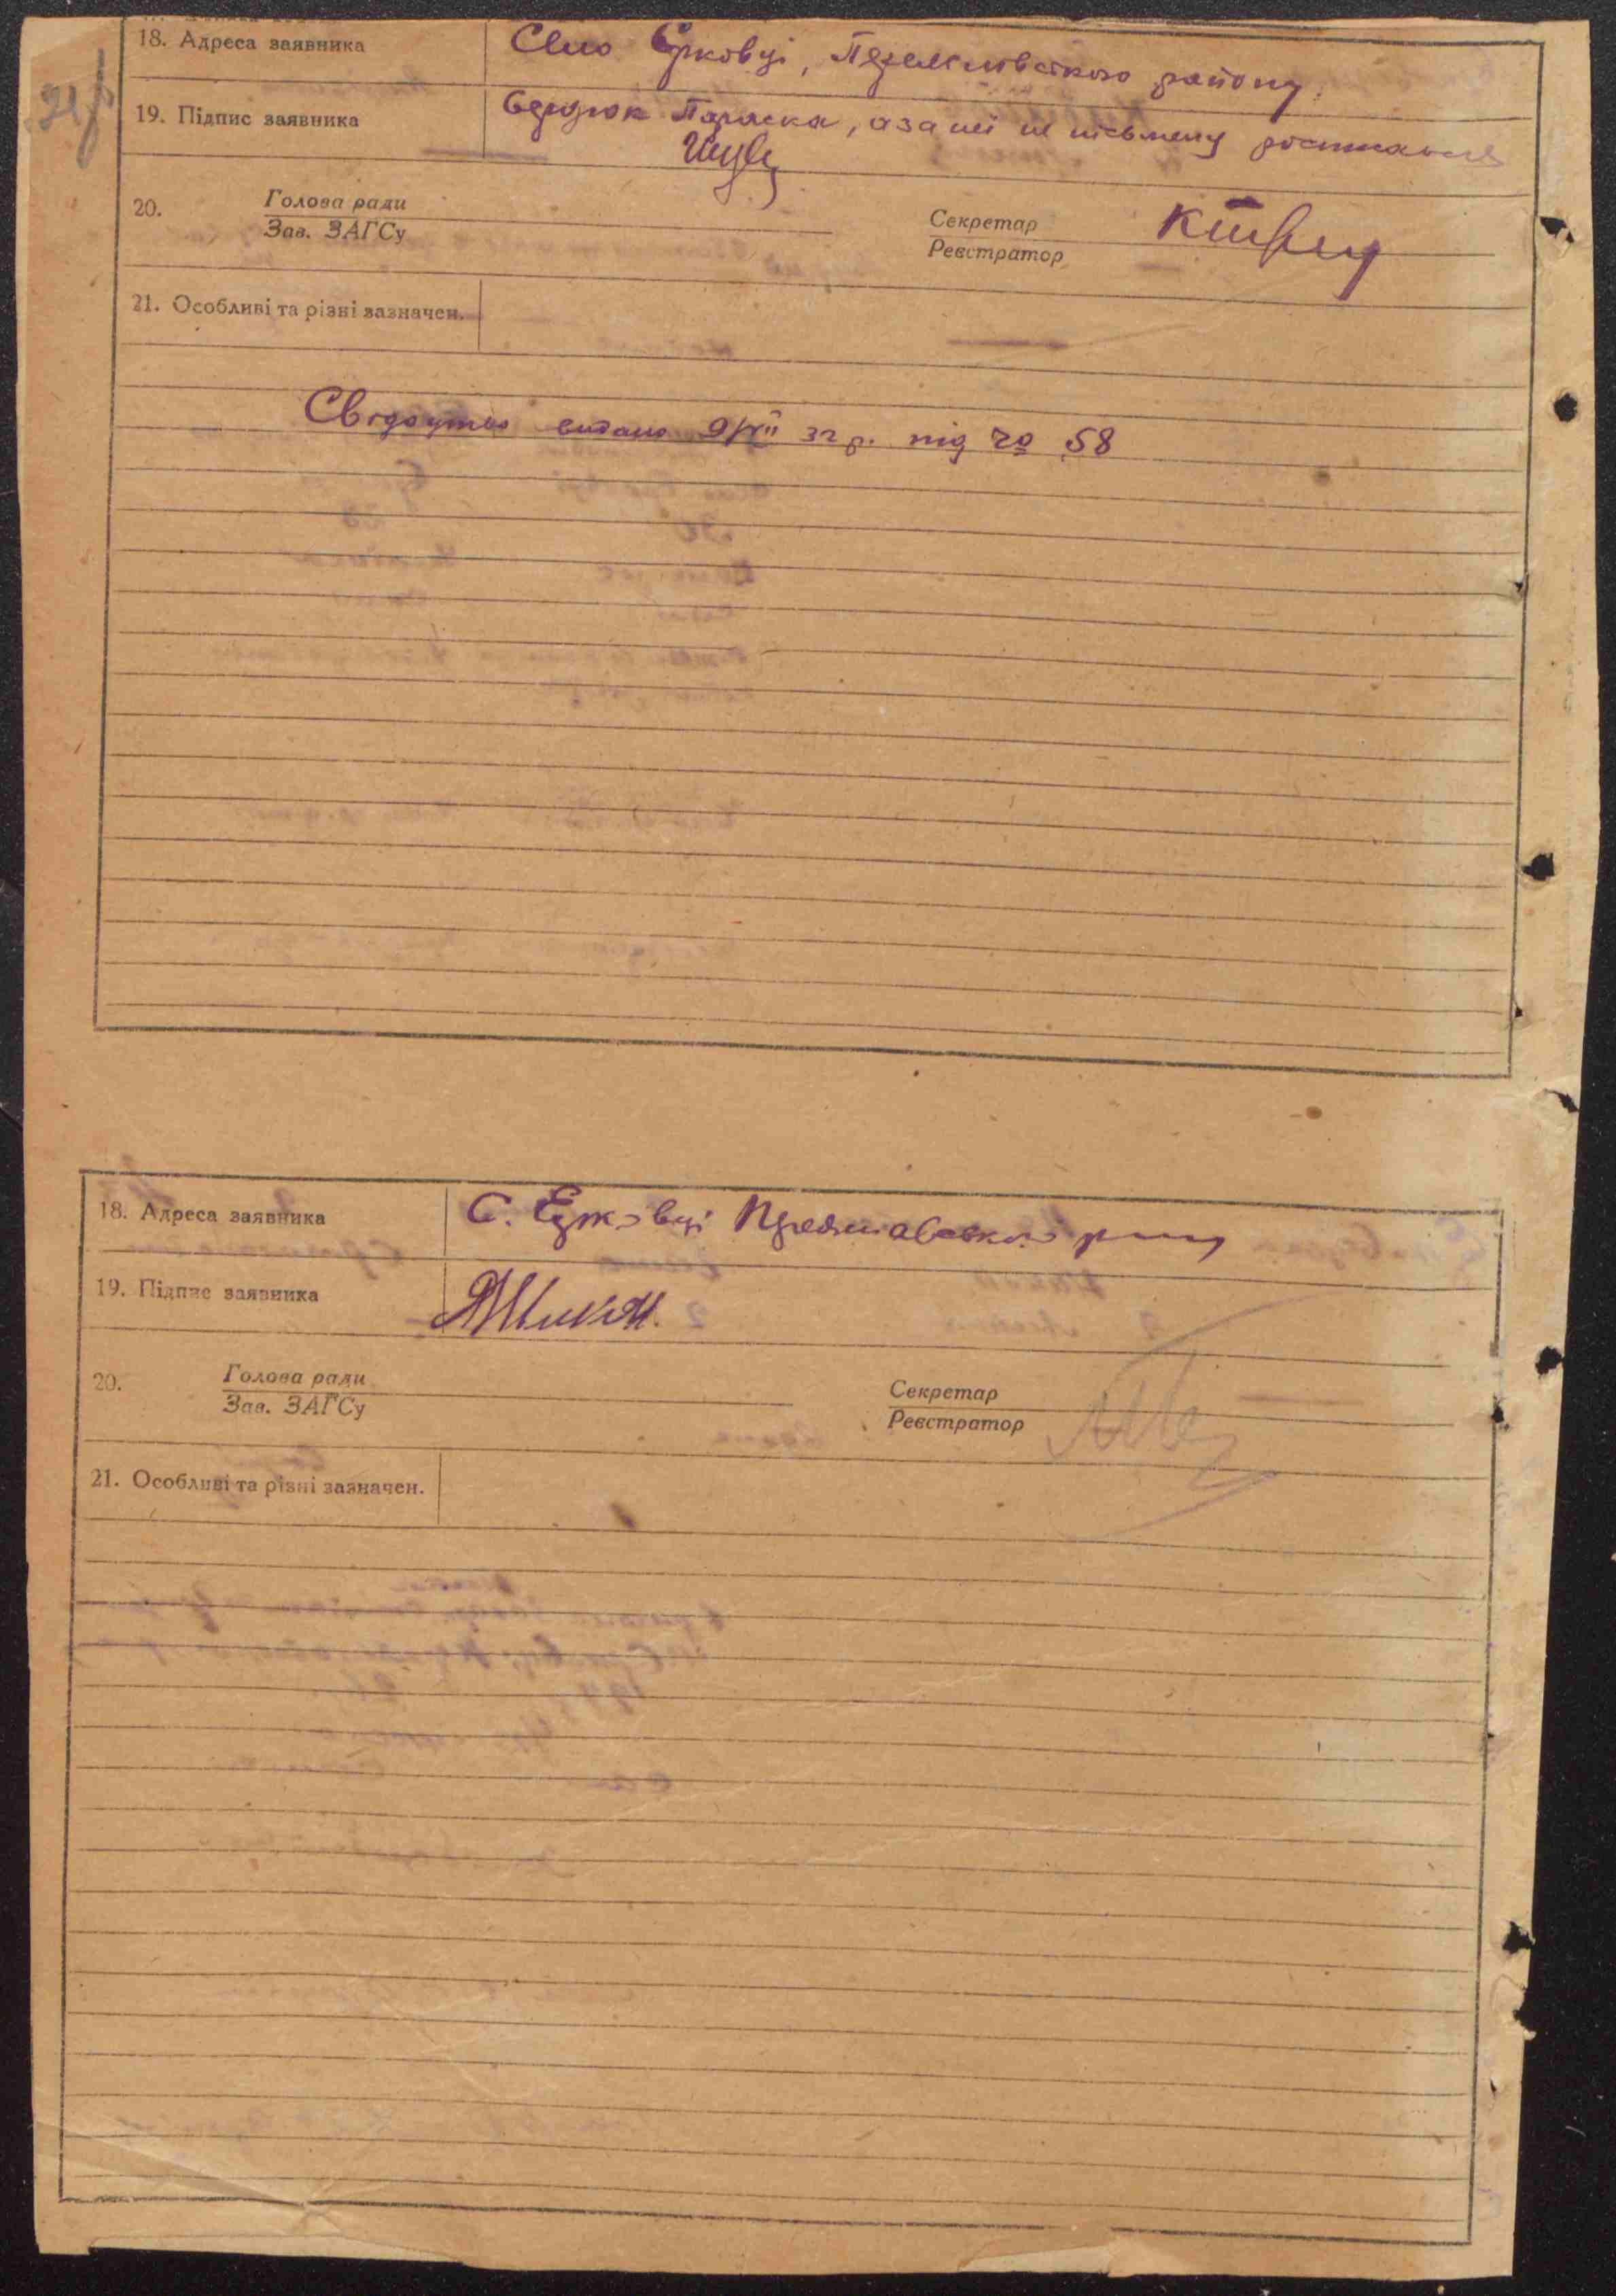 18. Адреса заявника Село Єрковці, Переяславського району.
19. Підпис заявника Сердюк Параска, а за неї не письмену росписався
20. Голова ради
Зав. ЗАГСу
Секретар
Реєстратор
21. Особливі та різні зазначен.
Свідоцтво видано 9/VII 32 р. під № 58
18. Адреса заявника С. Єрковці Переяславського р-ну
19. Підпис заявника
20. Голова ради
Зав. ЗАГСу
Секретар
Реєстратор
21. Особливі та різні зазначен.